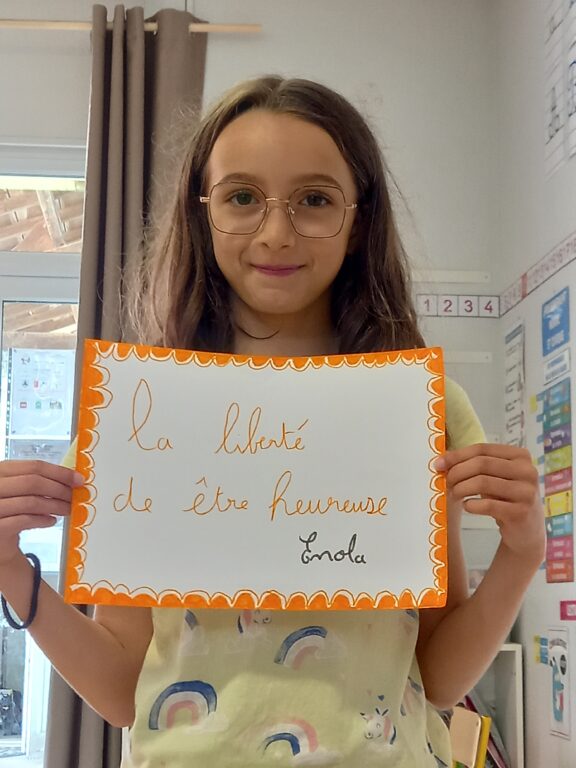 la liberté
de être heureuse
Enola
1 2 3 4